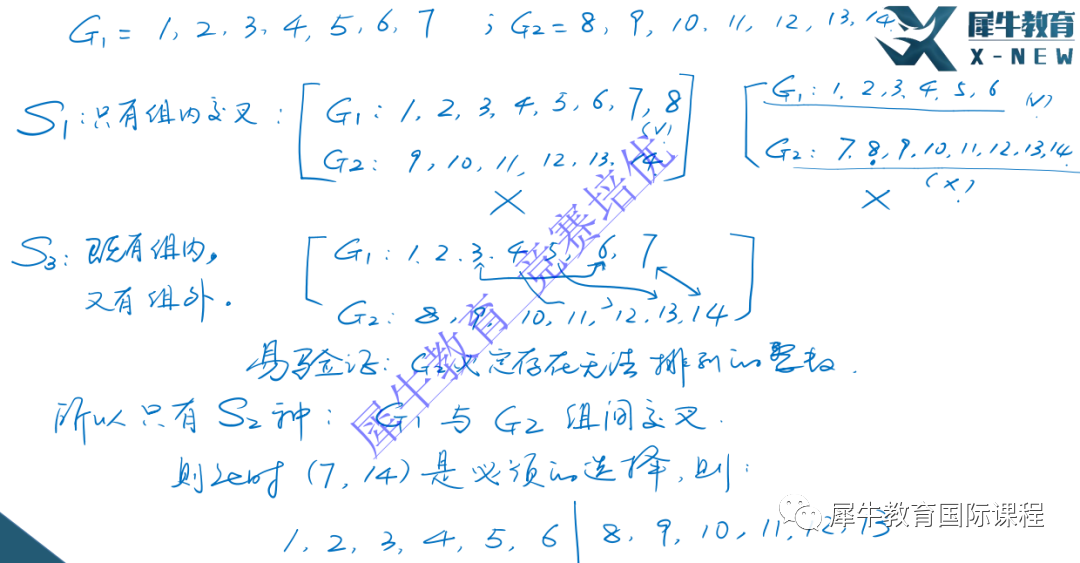 G₁ = 1, 2, 3, 4, 5, 6, 7 ; G₂ = 8, 9, 10, 11, 12, 13, 14
犀牛教育
X-NEW
S₁: 只有组内交叉: [ G₁: 1, 2, 3, 4, 5, 6, 7, 8 (√)
G₂: 9, 10, 11, 12, 13, 14 ]
×
[ G₁: 1, 2, 3, 4, 5, 6 (√)
G₂: 7, 8, 9, 10, 11, 12, 13, 14
× (×)
S₃: 既有组内,
又有组外.
[ G₁: 1, 2, 3, 4, 5, 6, 7
G₂: 8, 9, 10, 11, 12, 13, 14 ]
易验证: G₂必定存在无法排列的整数.
所以只有S₂种: G₁与G₂组间交叉.
则此时 (7, 14) 是必须的选择, 则:
1, 2, 3, 4, 5, 6 | 8, 9, 10, 11, 12, 13
犀牛教育 竞赛培优
犀牛教育国际课程